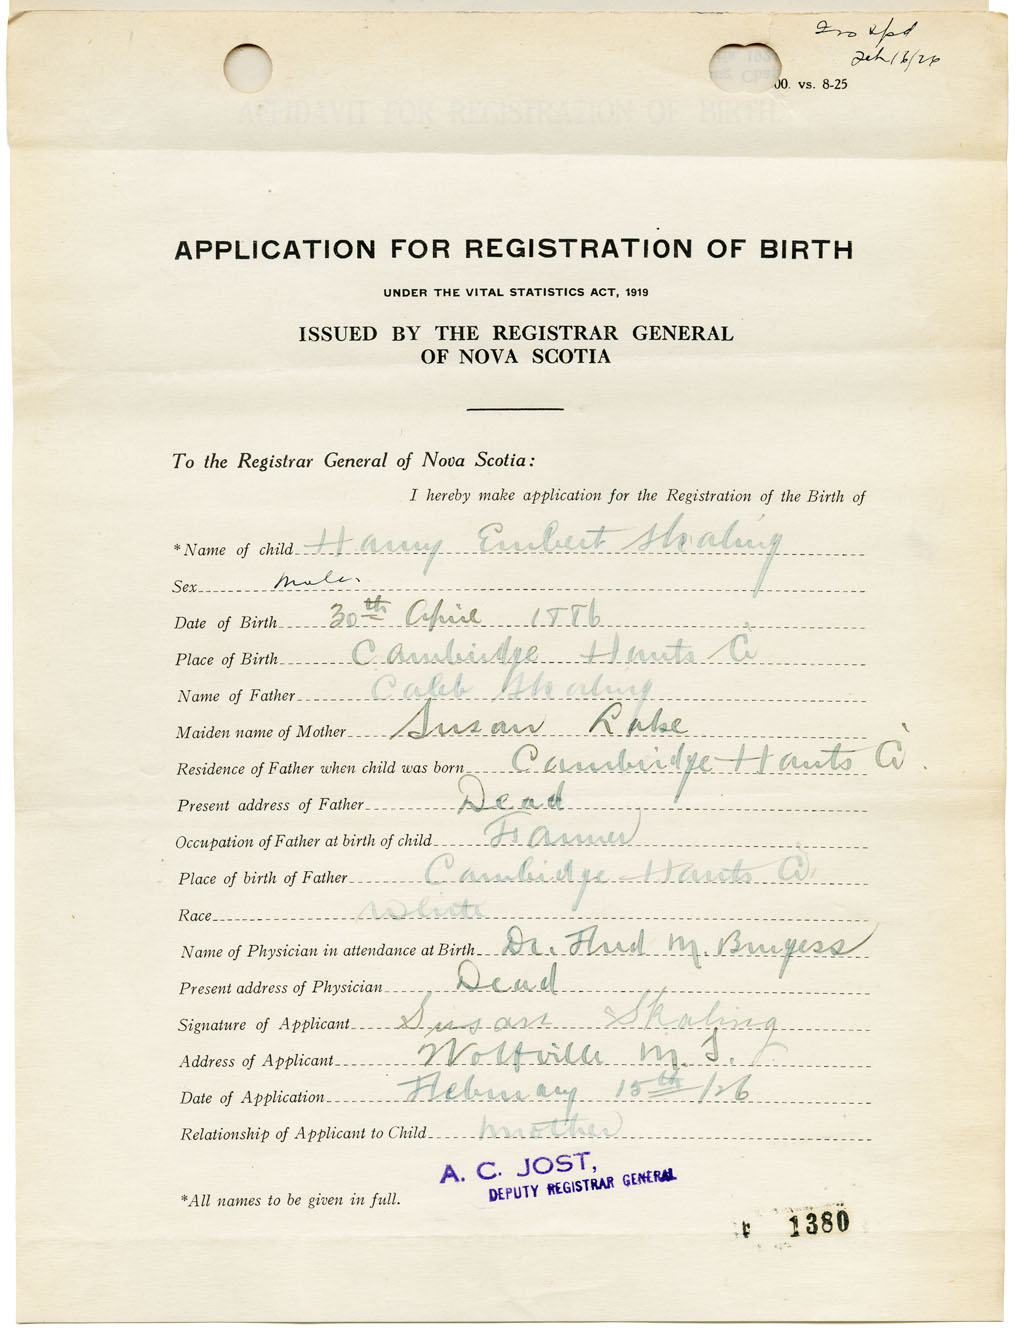 Feb 16/26
00. vs. 8-25
AFFIDAVIT FOR REGISTRATION OF BIRTH
APPLICATION FOR REGISTRATION OF BIRTH
UNDER THE VITAL STATISTICS ACT, 1919
ISSUED BY THE REGISTRAR GENERAL
OF NOVA SCOTIA
To the Registrar General of Nova Scotia:
I hereby make application for the Registration of the Birth of
*Name of child Harry Embert Skaling
Sex Male.
Date of Birth 30th April 1886
Place of Birth Cambridge Hants Co
Name of Father Caleb Skaling
Maiden name of Mother Susan Lake
Residence of Father when child was born Cambridge Hants Co.
Present address of Father Dead
Occupation of Father at birth of child Farmer
Place of birth of Father Cambridge Hants Co
Race White
Name of Physician in attendance at Birth Dr. Fred M. Burgess
Present address of Physician Dead
Signature of Applicant Susan Skaling
Address of Applicant Wolfville N. S.
Date of Application February 15th /26
Relationship of Applicant to Child Mother
A. C. JOST,
DEPUTY REGISTRAR GENERAL
*All names to be given in full.
1380